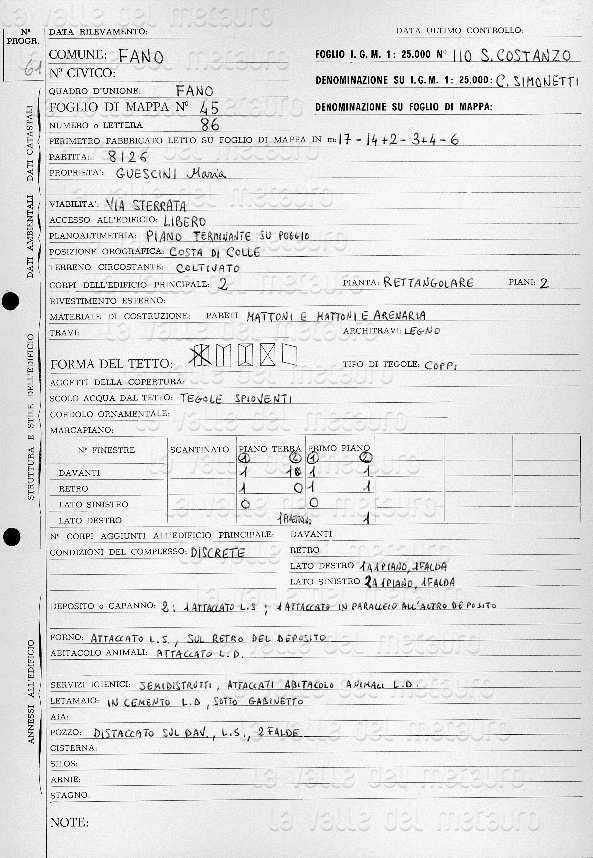 N° PROGR. 61
DATA RILEVAMENTO: DATA ULTIMO CONTROLLO:
COMUNE: FANO FOGLIO I. G. M. 1: 25.000 N° 110 S. COSTANZO
N° CIVICO: DENOMINAZIONE SU I. G. M. 1: 25.000: C. SIMONETTI
QUADRO D'UNIONE: FANO
FOGLIO DI MAPPA N° 45 DENOMINAZIONE SU FOGLIO DI MAPPA:
NUMERO o LETTERA 86
PERIMETRO FABBRICATO LETTO SU FOGLIO DI MAPPA IN m: 17-14+2-3+4-6
PARTITA: 8126
PROPRIETA': GUESCINI Maria
DATI CATASTALI
VIABILITA': VIA STERRATA
ACCESSO ALL'EDIFICIO: LIBERO
PLANOALTIMETRIA: PIANO TERMINANTE SU POGGIO
POSIZIONE OROGRAFICA: COSTA DI COLLE
TERRENO CIRCOSTANTE: COLTIVATO
DATI AMBIENTALI
CORPI DELL'EDIFICIO PRINCIPALE: 2 PIANTA: RETTANGOLARE PIANI: 2
RIVESTIMENTO ESTERNO:
MATERIALE DI COSTRUZIONE: PARETI MATTONI E MATTONI E ARENARIA
TRAVI: ARCHITRAVI: LEGNO
FORMA DEL TETTO: TIPO DI TEGOLE: COPPI
AGGETTI DELLA COPERTURA:
SCOLO ACQUA DAL TETTO: TEGOLE SPIOVENTI
CORDOLO ORNAMENTALE:
MARCAPIANO:
N° FINESTRE SCANTINATO PIANO TERRA PRIMO PIANO
1 2 1 2
DAVANTI 1 1 1 1
RETRO 1 0 1 1
LATO SINISTRO 0 0
LATO DESTRO 1
STRUTTURA E STILE DELL'EDIFICIO
N° CORPI AGGIUNTI ALL'EDIFICIO PRINCIPALE: DAVANTI
CONDIZIONI DEL COMPLESSO: DISCRETE RETRO
LATO DESTRO 1 A 1 PIANO, 1 FALDA
LATO SINISTRO 2 A 1 PIANO, 1 FALDA
DEPOSITO o CAPANNO: 2: 1 ATTACCATO L.S ; 1 ATTACCATO IN PARALLELO ALL'ALTRO DEPOSITO
FORNO: ATTACCATO L.S., SUL RETRO DEL DEPOSITO
ABITACOLO ANIMALI: ATTACCATO L.D.
SERVIZI IGIENICI: SEMIDISTRUTTI, ATTACCATI ABITACOLO ANIMALI L.D.
LETAMAIO: IN CEMENTO L.D, SOTTO GABINETTO
AIA:
POZZO: DISTACCATO SUL DAV., L.S., 2 FALDE
CISTERNA:
SILOS:
ARNIE:
STAGNO:
ANNESSI ALL'EDIFICIO
NOTE:
la valle del metauro